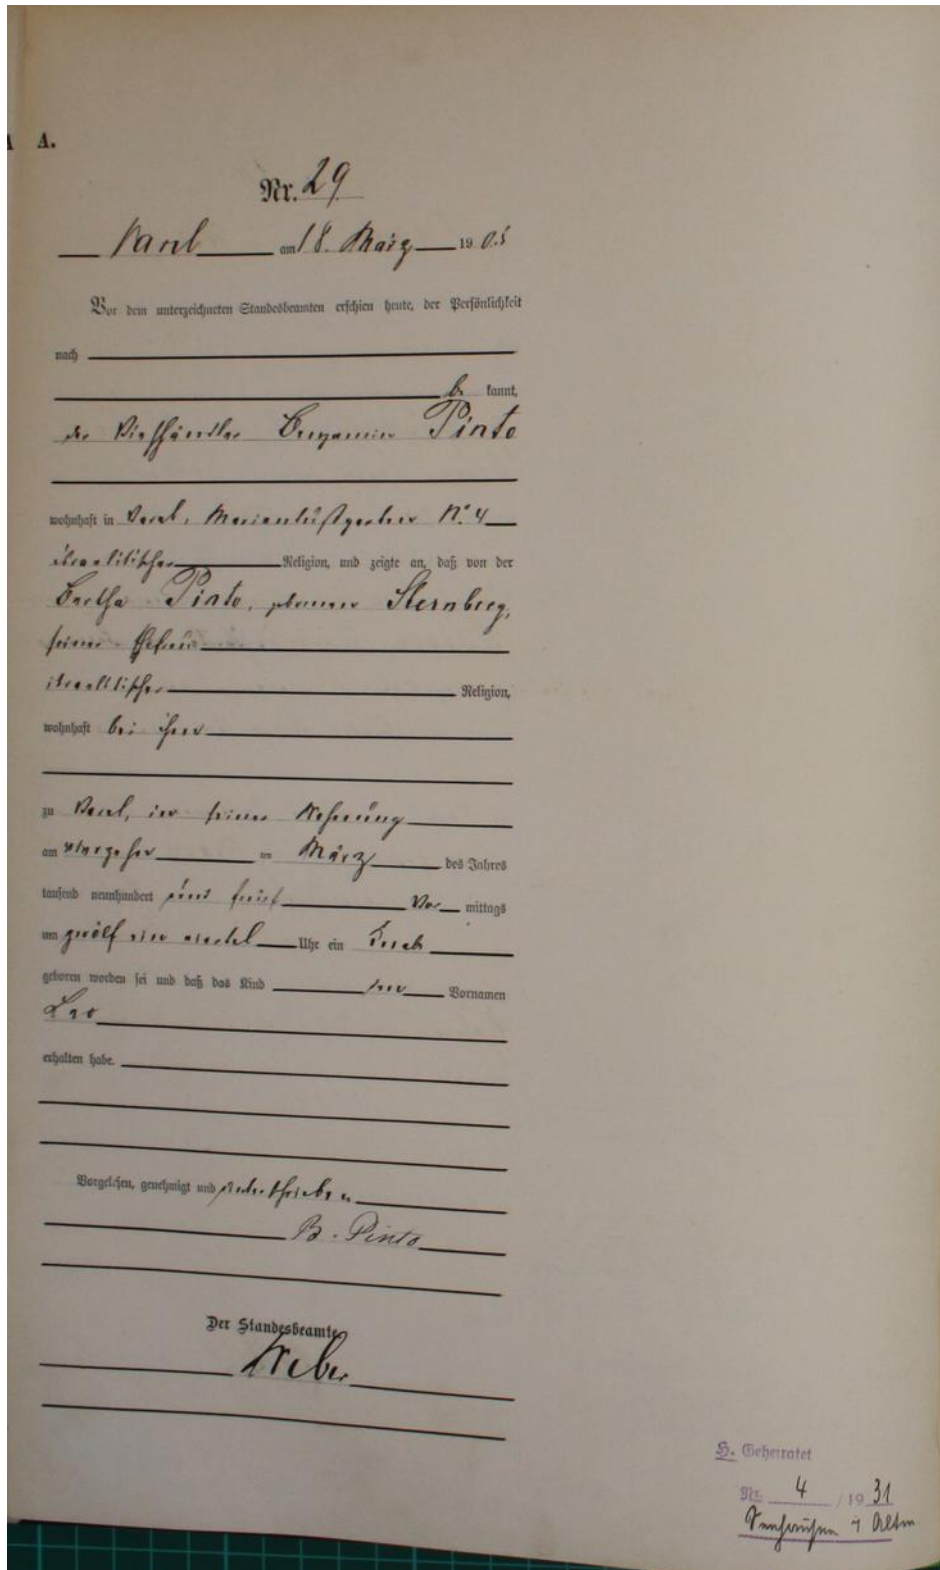 A.
Nr. 29
Varel am 18. März 1905
Vor dem unterzeichneten Standesbeamten erschien heute, der Persönlichkeit
nach
be kannt,
der Viehhändler Benjamin Pinto
wohnhaft in Varel, Marienlustgarten No. 4
israelitischer Religion, und zeigte an, daß von der
Bertha Pinto, geborenen Sternberg,
seiner Ehefrau
israelitischer Religion,
wohnhaft bei ihm
zu Varel, in seiner Wohnung
am vierzehn ten März des Jahres
tausend neunhundert und fünf Vor mittags
um zwölf ein viertel Uhr ein Knabe
geboren worden sei und daß das Kind den Vornamen
Leo
erhalten habe.
Vorgelesen, genehmigt und unterschrieben
B. Pinto
Der Standesbeamte
Weber
H. Geheiratet
Nr. 4 / 1931
Seehausen i Altm